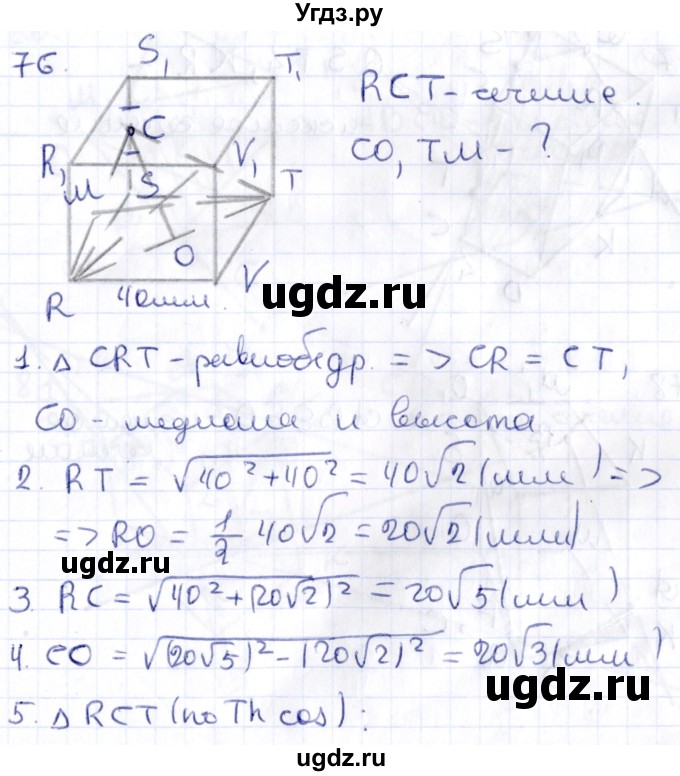 Угдз.ру
76.
S₁
T₁
RCT - сечение.
C
CO, TM - ?
R₁
V₁
M
S
T
O
R
40мм.
V
ugdz.ru
1. △ CRT - равнобедр. => CR = CT,
CO - медиана и высота
2. RT = √(40² + 40²) = 40√2 (мм) =>
=> RO = 1/2 40√2 = 20√2 (мм)
ugdz.ru
3. RC = √(40² + (20√2)² = 20√5 (мм)
4. CO = √(20√5)² - (20√2)² = 20√3 (мм)
ugdz.ru
5. △ RCT (по Th cos):
ugdz.ru